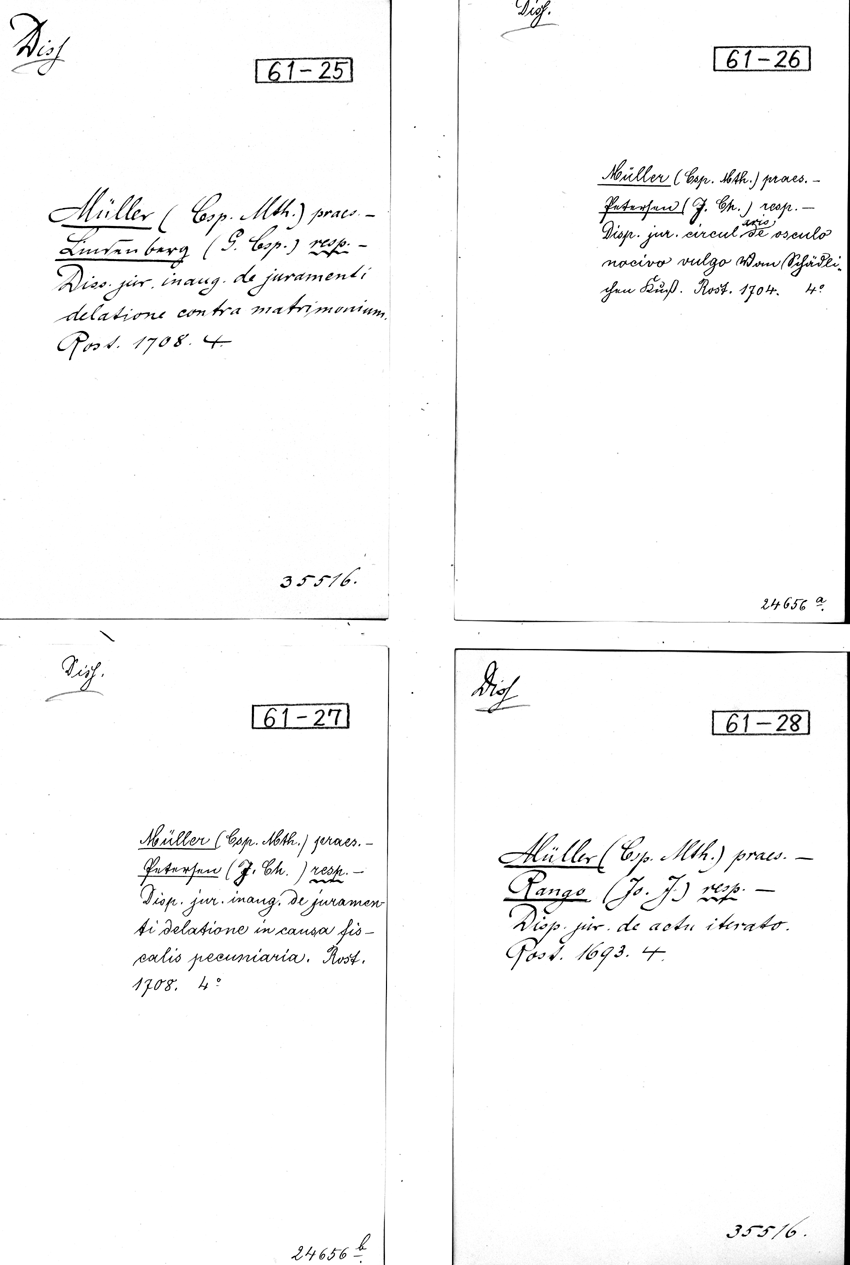 Diss
61-25
Müller (Csp. Mth.) praes. –
Lindenberg (G. Csp.) resp. –
Diss. jur. inaug. de juramenti
delatione contra matrimonium.
Rost. 1708. 4.
35516.
Diss.
61-26
Müller (Csp. Mth.) praes. –
Petersen (J. Ch.) resp. –
Disp. jur. circularis de osculo
nocivo vulgo Vom Schädli-
chen Kuß. Rost. 1704. 4°
24656 a.
Diss.
61-27
Müller (Csp. Mth.) praes. –
Petersen (J. Ch.) resp. –
Disp. jur. inaug. de juramen-
ti delatione in causa fis-
calis pecuniaria. Rost.
1708. 4°
24656 b.
Diss
61-28
Müller (Csp. Mth.) praes. –
Rango (Jo. J.) resp. –
Disp. jur. de actu iterato.
Rost. 1693. 4.
35516.